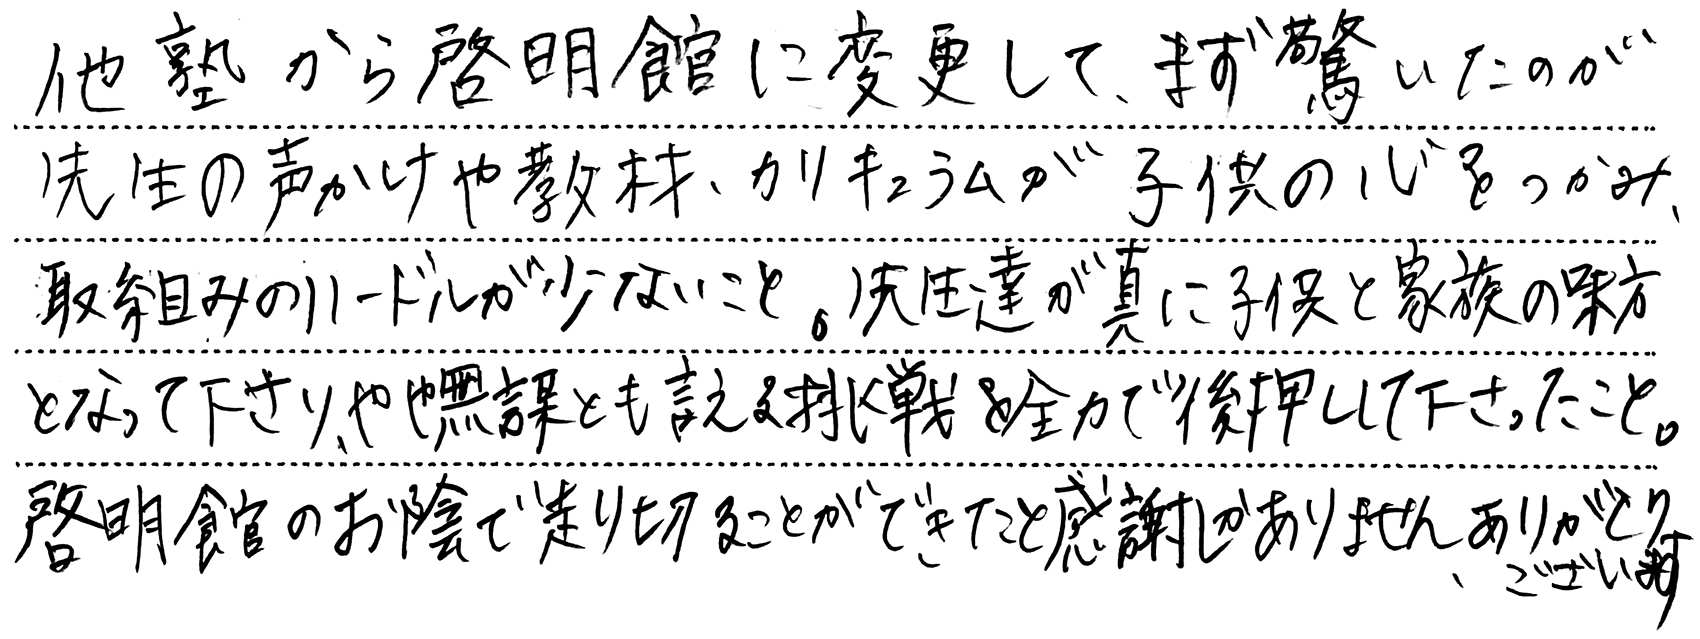 他塾から啓明館に変更して、まず驚いたのが
先生の声かけや教材、カリキュラムが子供の心をつかみ、
取組みのハードルが少ないこと。先生達が真に子供と家族の味方
となって下さり、やや無謀とも言える挑戦を全力で後押しして下さったこと。
啓明館のお陰で走り切ることができたこと感謝しかありません、ありがとう
ございます